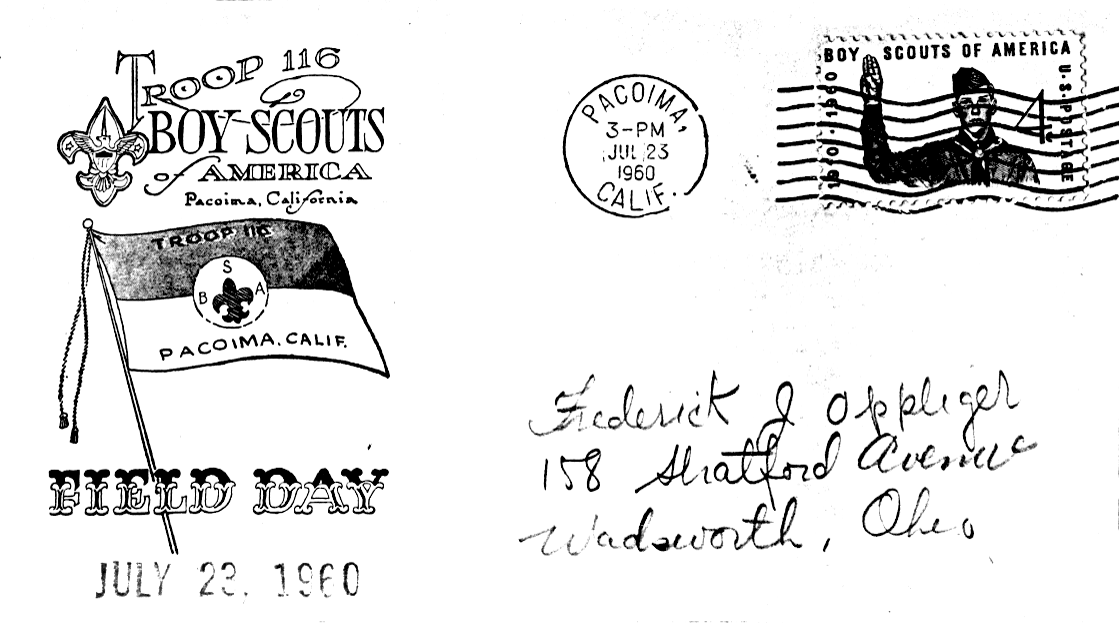 TROOP 116
BOY SCOUTS
of AMERICA
Pacoima, California
TROOP 116
S
B A
PACOIMA, CALIF.
FIELD DAY
JULY 23, 1960
PACOIMA,
3-PM
JUL 23
1960
CALIF.
BOY SCOUTS OF AMERICA
U.S. POSTAGE
1910 · 1960
4¢
Frederick J Oppliger
158 Stratford Avenue
Wadsworth, Ohio